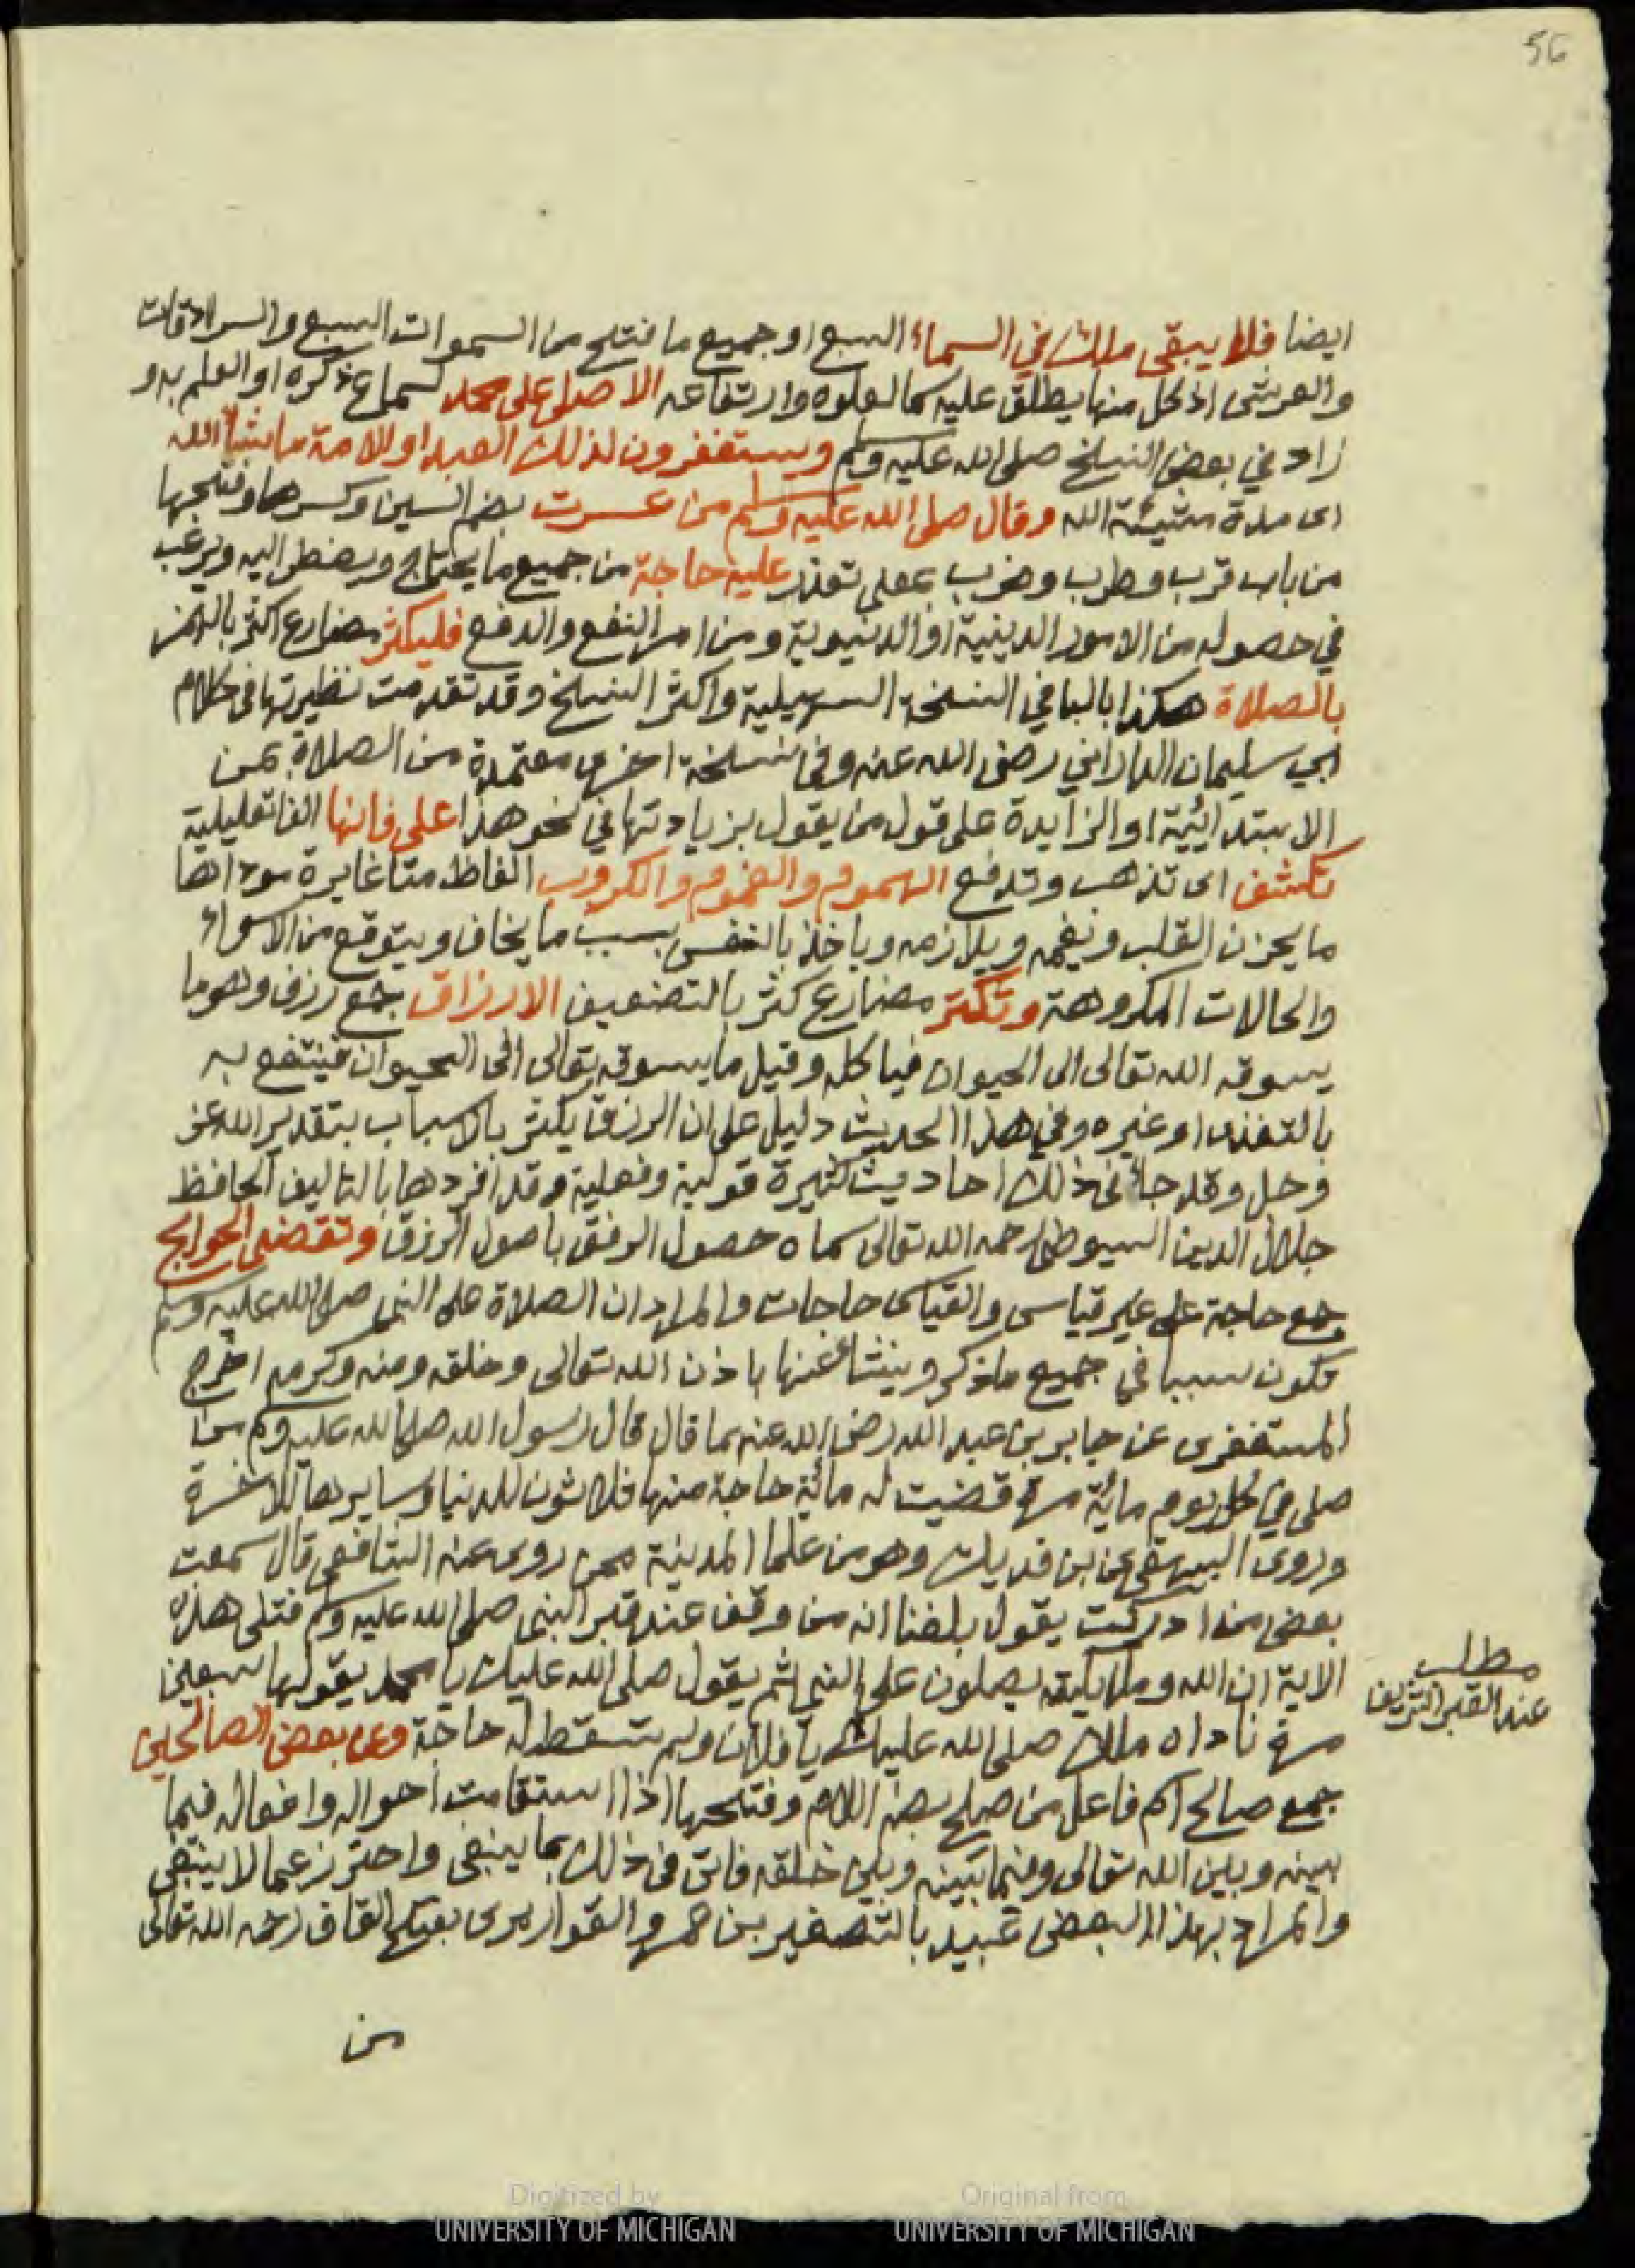 56
ايضا فلا يبقى ملك في السماء السبع او جميع ما فتح من السموات السبع والسرادقات
والعرش اذ كل منها يطلق عليه سما لعلوه وارتفاعه الا صلى على محمد لسماع ذكره او العلم به و
زاد في بعض النسخ صلى الله عليه وسلم ويستغفرون لذلك العبد او الامة ما شاء الله
اى مدة مشيئة الله وقال صلى الله عليه وسلم من عسرت بضم السين وكسرها وفتحها
من باب قرب وطرب وضرب بمعنى تعذر عليه حاجة من جميع ما يحتاج ويضطر اليه ويرغب
في حصوله من الامور الدينية او الدنيوية ومن امر النفع والدفع فليكثر مضارع اكثر بالهمز
بالصلاة هكذا بالبا في النسخة السهيلية واكثر النسخ وقد تقدمت نظيرتها في كلام
ابي سليمان الداراني رضى الله عنه وفي نسخة اخرى معتمدة من الصلاة بمن
الابتدائية او الزايدة على قول من يقول بزيادتها في نحو هذا على فانها الفا تعليلية
تكشف اى تذهب وتدفع الهموم والغموم والكروب الفاظ متغايرة مؤداها
ما يحزن القلب ويغمه ويلازمه وياخذ بالنفس بسبب ما يخاف ويتوقع من الاسواء
والحالات المكروهة وتكثر مضارع كثر بالتضعيف الارزاق جمع رزق وهو ما
يسوقه الله تعالى الى الحيوان فياكله وقيل ما يسوقه تعالى الى الحيوان فينتفع به
بالتغذى او غيره وفي هذا الحديث دليل على ان الرزق يكثر بالاسباب بتقدير الله عز
وجل وقد جاء في ذلك احاديث كثيرة قولية وفعلية وقد افردها بالتاليف الحافظ
جلال الدين السيوطي رحمه الله تعالى سماه حصول الرفق باصول الرزق وتقضى الحوايج
جمع حاجة على غير قياسى والقياس حاجات والمراد ان الصلاة على النبي صلى الله عليه وسلم
تكون سببا في جميع ما ذكر وينشأ عنها باذن الله تعالى وخلقه ومنه وكرمه اخرج
المستغفرى عن جابر بن عبد الله رضى الله عنهما قال قال رسول الله صلى الله عليه وسلم من
صلى في كل يوم ماية مرة قضيت له مائة حاجة منها ثلاثون للدنيا وسايرها للاخرة
وروى البيهقي عن بن فديك وهو من علما المدينة ممن روى عنه الشافعي قال سمعت
بعض من ادركت يقول بلغنا انه من وقف عند قبر النبي صلى الله عليه وسلم فتلى هذه
الاية ان الله وملايكته يصلون على النبي ثم يقول صلى الله عليك يا محمد يقولها سبعين
مرة ناداه ملك صلى الله عليك يا فلان ولم تسقط له حاجة وعن بعض الصالحين
جمع صالح اسم فاعل من صلح بضم اللام وفتحها اذا استقامت احواله وافعاله فيما
بينه وبين الله تعالى وفيما بينه وبين خلقه فاتى في ذلك بما ينبغى واحترز عما لا ينبغى
والمراد بهذا البعض عبيد بالتصغير بن عمر والقواريرى بفتح القاف رحمه الله تعالى
من
مطلب
عند القبر الشريف
Digitized by
UNIVERSITY OF MICHIGAN
Original from
UNIVERSITY OF MICHIGAN